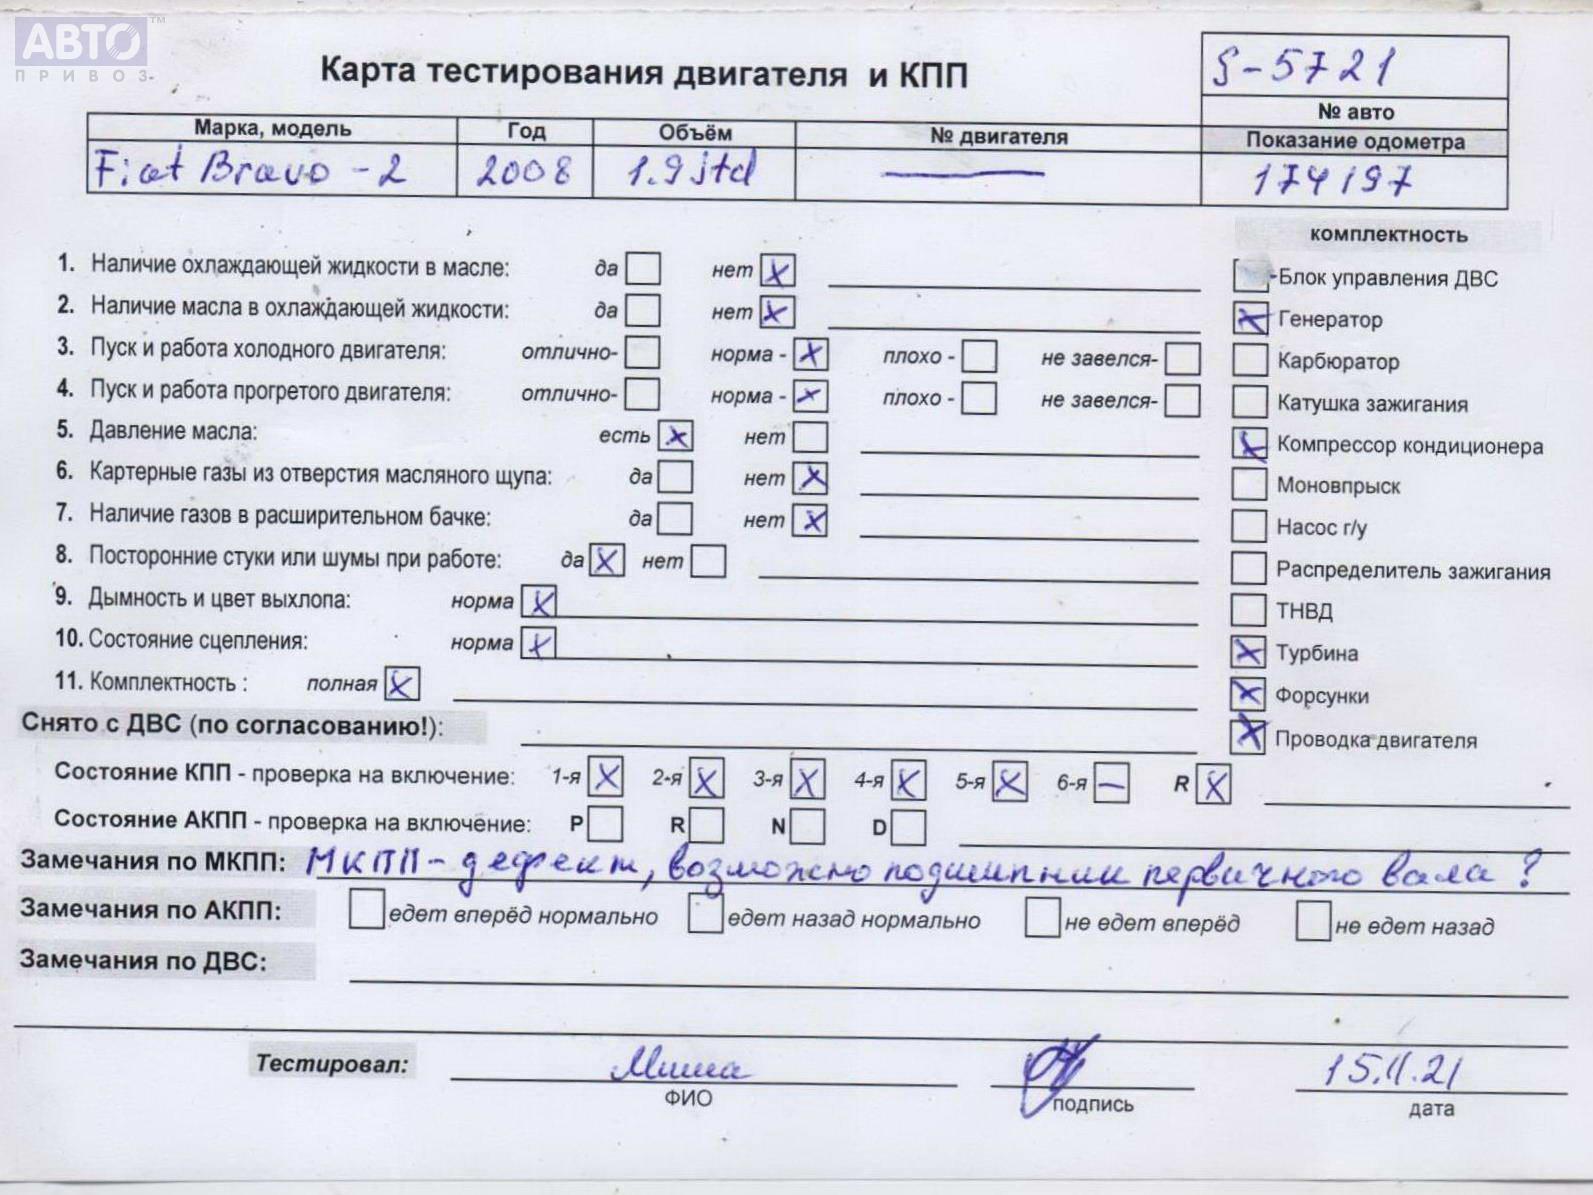 АВТО™
ПРИВОЗ
Карта тестирования двигателя и КПП
S-5721
№ авто
Марка, модель Год Объём № двигателя Показание одометра
Fiat Bravo - 2 2008 1.9 jtd — 174197
комплектность
1. Наличие охлаждающей жидкости в масле: да нет X
Блок управления ДВС
2. Наличие масла в охлаждающей жидкости: да нет X
X Генератор
3. Пуск и работа холодного двигателя: отлично- норма - X плохо - не завелся-
Карбюратор
4. Пуск и работа прогретого двигателя: отлично- норма - X плохо - не завелся-
Катушка зажигания
5. Давление масла: есть X нет
X Компрессор кондиционера
6. Картерные газы из отверстия масляного щупа: да нет X
Моновпрыск
7. Наличие газов в расширительном бачке: да нет X
Насос г/у
8. Посторонние стуки или шумы при работе: да X нет
Распределитель зажигания
9. Дымность и цвет выхлопа: норма X
ТНВД
10. Состояние сцепления: норма X
X Турбина
11. Комплектность : полная X
X Форсунки
Снято с ДВС (по согласованию!):
X Проводка двигателя
Состояние КПП - проверка на включение: 1-я X 2-я X 3-я X 4-я X 5-я X 6-я — R X
Состояние АКПП - проверка на включение: P R N D
Замечания по МКПП: МКПП - дефект, возможно подшипник первичного вала ?
Замечания по АКПП: едет вперёд нормально едет назад нормально не едет вперёд не едет назад
Замечания по ДВС:
Тестировал: Миша 15.11.21
ФИО подпись дата